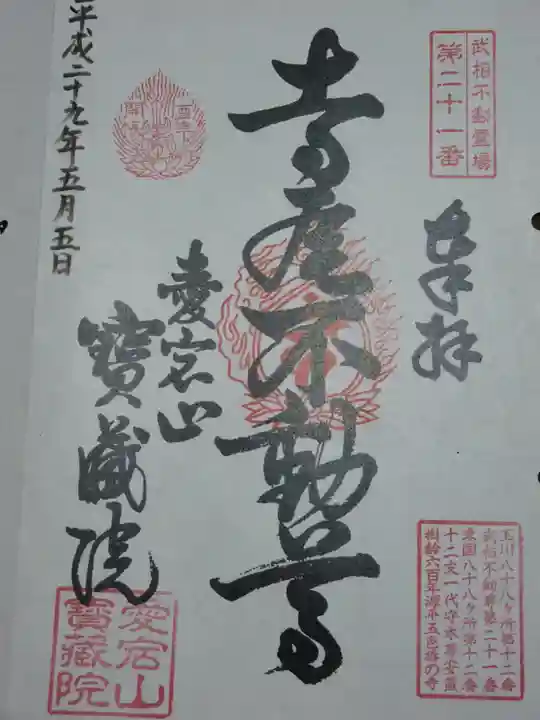 武相不動霊場
第二十一番
奉拝
不動尊
愛宕山
寶蔵院
平成二十九年五月五日
愛宕山
寶藏院
玉川八十八ヶ所第十二番
武相不動尊第二十一番
東国八十八ヶ所第十二番
十二支一代守本尊安置
樹齢六百年源平五色椿の寺